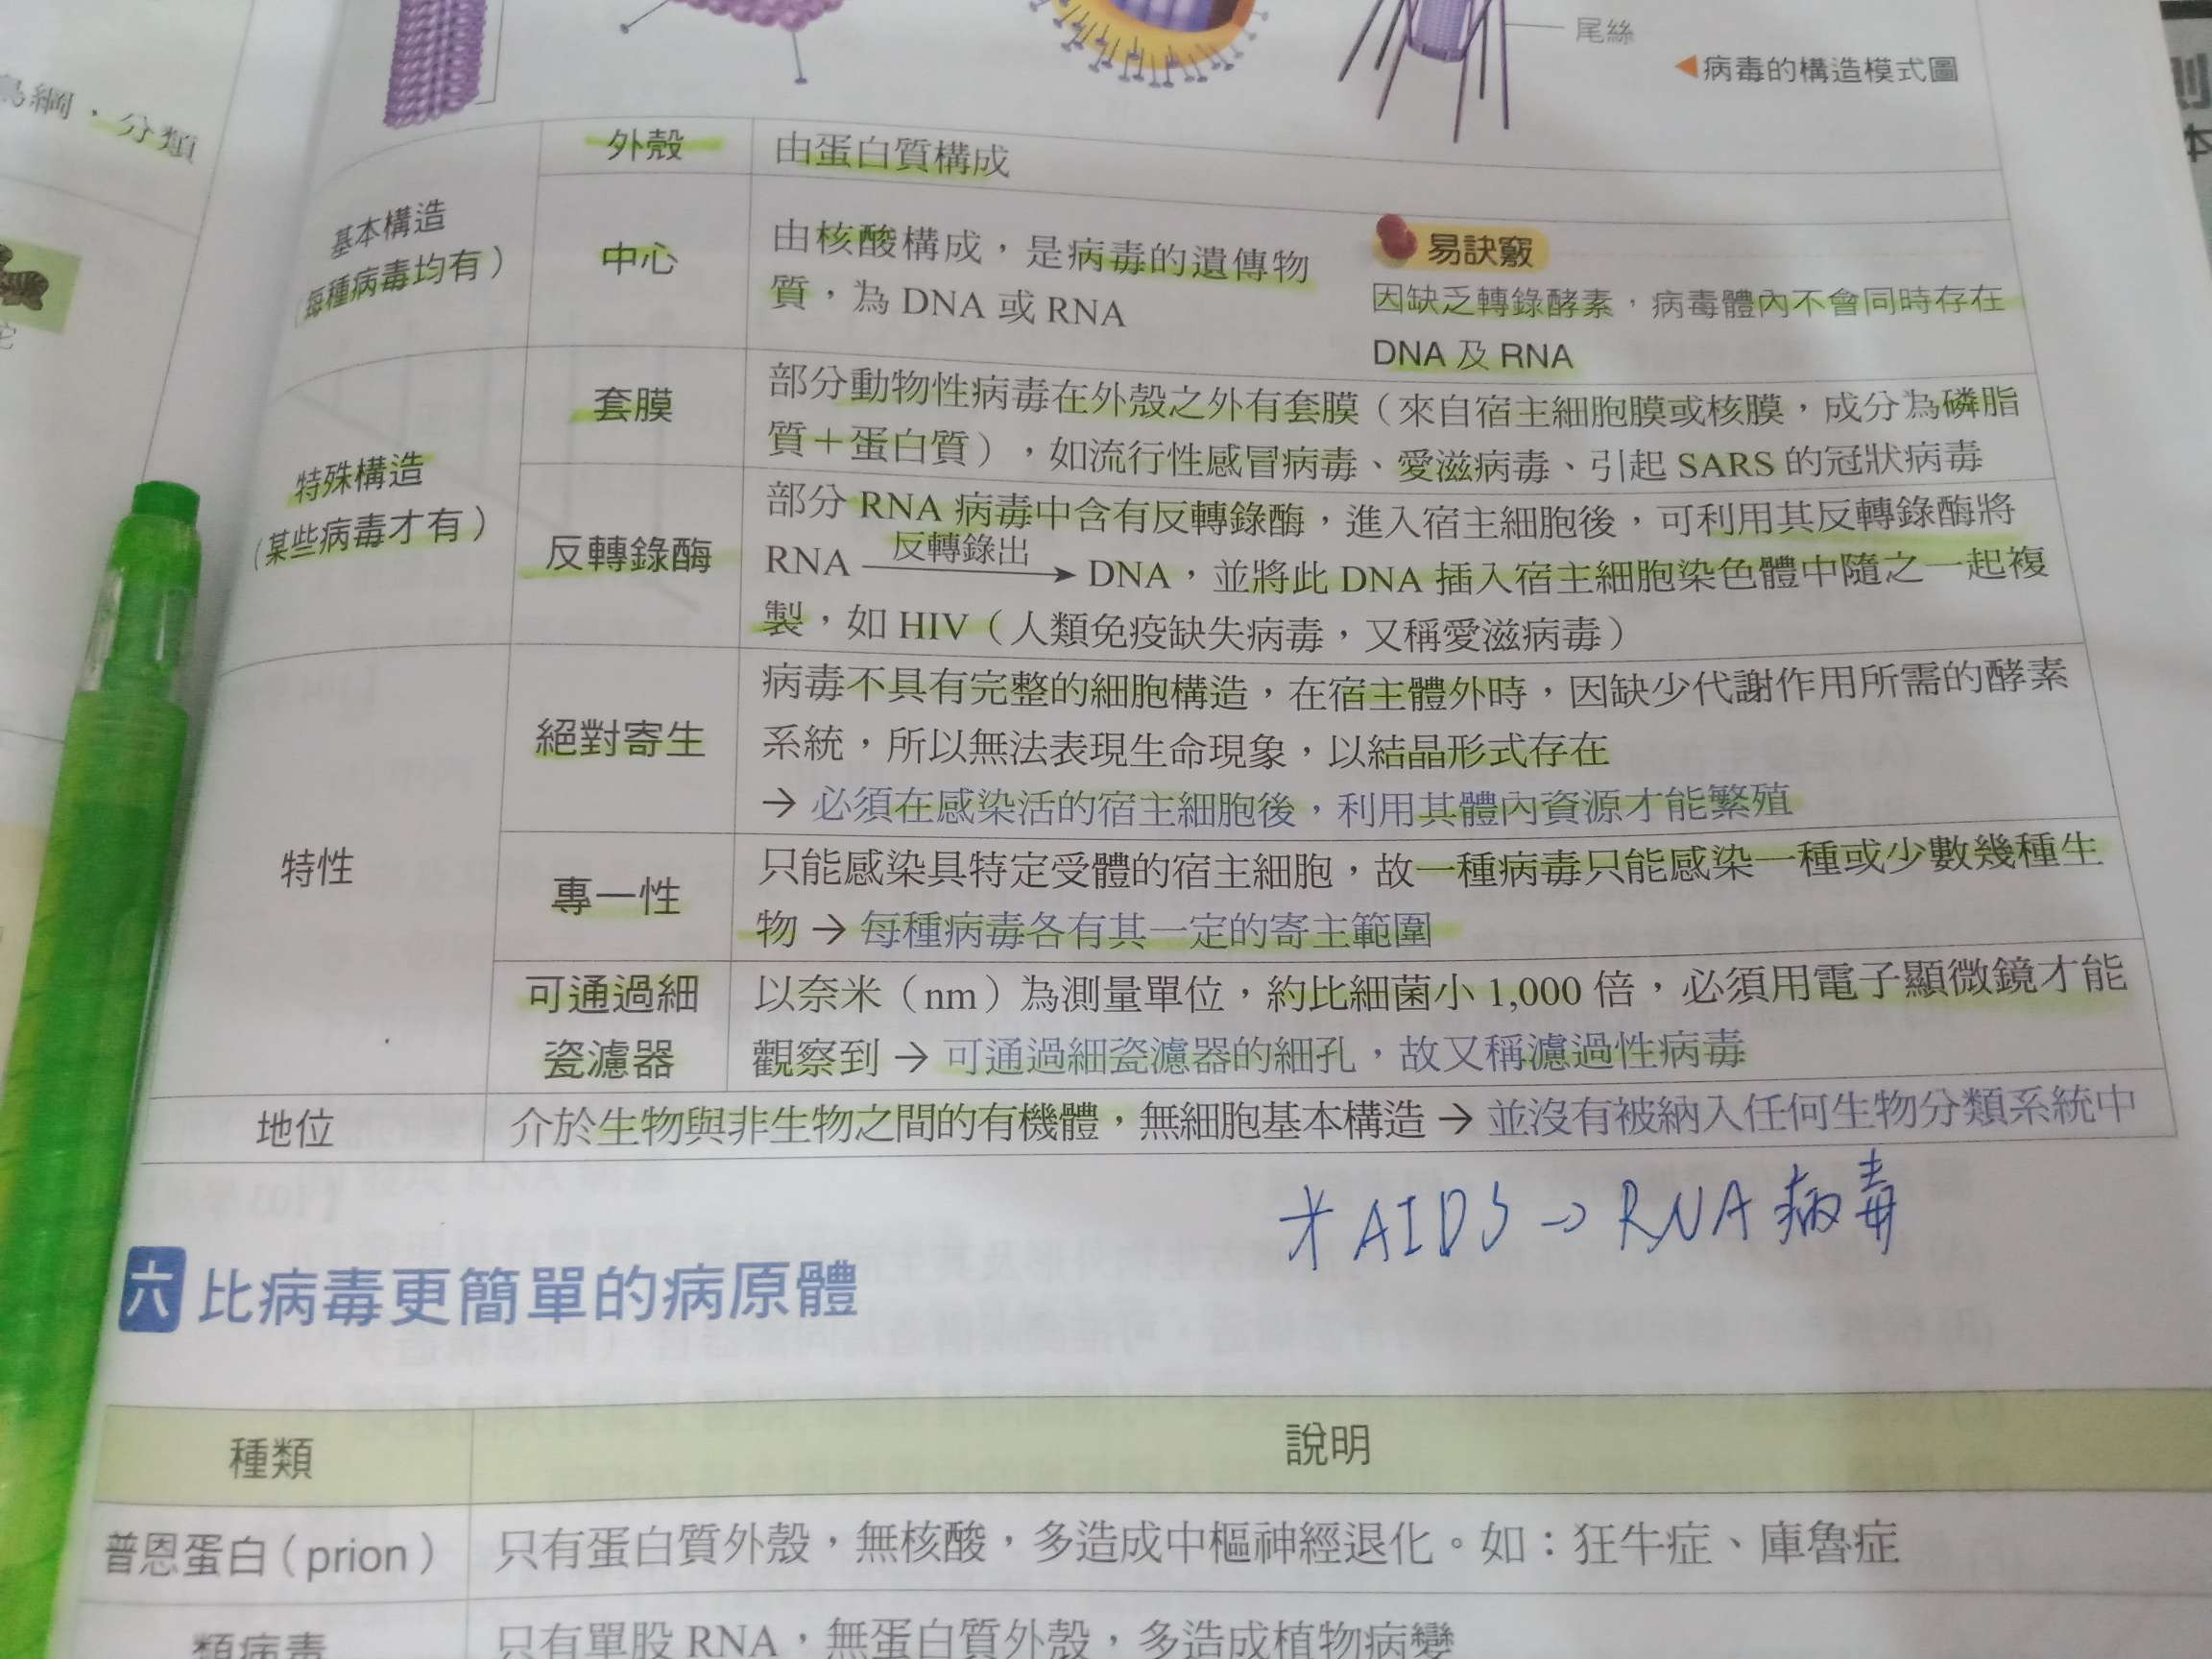 尾絲
◀病毒的構造模式圖
鳥綱,分類
基本構造
(每種病毒均有)
外殼
由蛋白質構成
中心
由核酸構成,是病毒的遺傳物
質,為 DNA 或 RNA
易訣竅
因缺乏轉錄酵素,病毒體內不會同時存在
DNA 及 RNA
特殊構造
(某些病毒才有)
套膜
部分動物性病毒在外殼之外有套膜(來自宿主細胞膜或核膜,成分為磷脂
質+蛋白質),如流行性感冒病毒、愛滋病毒、引起 SARS 的冠狀病毒
反轉錄酶
部分 RNA 病毒中含有反轉錄酶,進入宿主細胞後,可利用其反轉錄酶將
RNA 反轉錄出→ DNA,並將此 DNA 插入宿主細胞染色體中隨之一起複
製,如 HIV(人類免疫缺失病毒,又稱愛滋病毒)
特性
絕對寄生
病毒不具有完整的細胞構造,在宿主體外時,因缺少代謝作用所需的酵素
系統,所以無法表現生命現象,以結晶形式存在
→ 必須在感染活的宿主細胞後,利用其體內資源才能繁殖
專一性
只能感染具特定受體的宿主細胞,故一種病毒只能感染一種或少數幾種生
物 → 每種病毒各有其一定的寄主範圍
可通過細
瓷濾器
以奈米(nm)為測量單位,約比細菌小 1,000 倍,必須用電子顯微鏡才能
觀察到 → 可通過細瓷濾器的細孔,故又稱濾過性病毒
地位
介於生物與非生物之間的有機體,無細胞基本構造 → 並沒有被納入任何生物分類系統中
AIDS → RNA 病毒
六 比病毒更簡單的病原體
種類
說明
普恩蛋白(prion)
只有蛋白質外殼,無核酸,多造成中樞神經退化。如:狂牛症、庫魯症
類病毒
只有單股 RNA,無蛋白質外殼,多造成植物病變